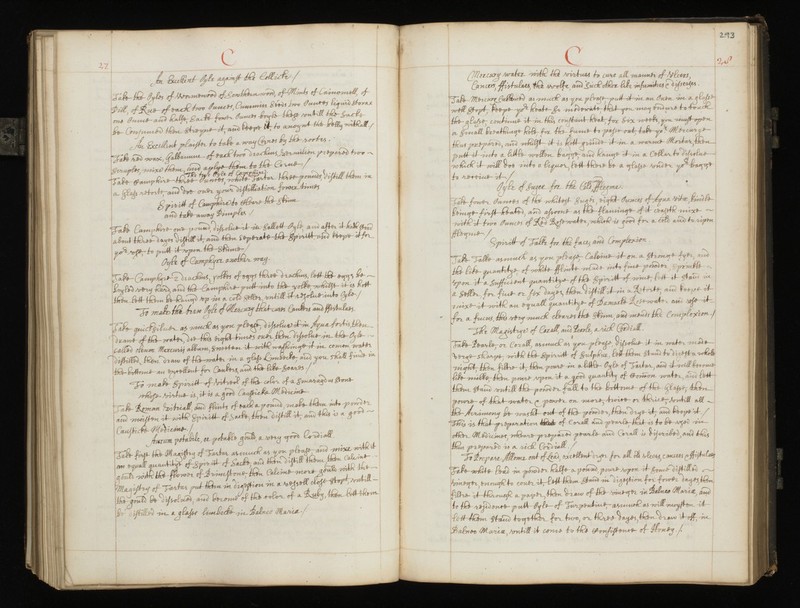 27
C
An Excellent Oyle against the Collicke /
Take the Oyles of Wormewood of Southernwood, of Mints of Cammomell, of
Dill, of Rue of each two Ounces, Cummine Seeds two Ounces liquid Storax
one Ounce and halfe, Sacke foure Ounces boyle these untill the Sacke
be Consumed then strayne it, and keepe it to anoynt the belly withall /
An Excellent plaister to take away Cornes by the rootes.
Take red wax, Galbanum of each two drachms, Vermilion prepared two
Scruples, mixe them, and applye them to the Corne /
The true Oyle of Camphire
Take Camphire three Ounces, white Tartar three pounds, distill them in
a glasse retorte, and doe over your distillation foure times
Spiritt of Camphire to cleare the skinn
and take away Pimples /
Take Camphire one pound, dissolve it in Sallett Oyle, and after it hath stood
about three dayes distill it, and then seperate the Spiritt and keepe it for
yor use, to putt it upon the skinne
Oyle of Camphyr another way
Take Camphire 2 drachms, yolkes of eggs three drachms, lett the eggs be
boyled very hard, and the Camphire putt into the yolke whilst it is hott
then lett them be hung up in a cold Seller, untill it resolve into Oyle /
To make the true Oyle of Mercury that cures Cankers and ffistulaes
Take quicksilver as much as you please, dissolve it in Aqua fortis then
draw of the water, doe this eight times over, then dissolve in the Oyle
distilled, then draw of the water in a glasse Limbecke, and you shall finde in
the bottome an excellent for Cankers, and the like Soares /
To make Spiritt of Vitriol of the color of a Smaragdus Stone
whose virtue is, it is a good Caustick Medicine
Take Roman Vitrioll, and flints of each a pound, make them into powder
and moysten it with Spiritt of Sacke, then distill it, and this is a good
Causticke Medicine /
Aurum potabile, or potable gould a very good Cordiall
Take first the Magistery of Tartar as much as you please and mixe with it
an equall quantitye of Spiritt of Sacke, and then distill them, then Calcine
gould with the flowers of Brimstone, then Calcine more gould with the
Magistery of Tartar put them in digestion in a vessell close stopt untill
the gould be dissolved, and become of the color of a Ruby, then lett them
be distilled in a glasse limbeck in Balneo Mariæ /
293
C
28
Mercury water with the virtues to cure all manner of Ulcers,
Cancer, ffistulaes, the woolfe, and such other like infirmities & diseases
Take Mercury Calcined as much as you please put it in an Oven in a glasse
well stopt, keepe yor heate so moderate that you may endure to touch
the glasse, continue it in this constant heat for Six weeks, you must open
a small breathing hole for the fume to passe out take yor Mercurye
thus prepared, and whilst it is hott grinde it in a warme Morter, then
putt it into a little wollen bagge, and hang it in a Cellar to dissolve
which it will doe into a liquor, lett there be a glasse under yor bagge
to receive it /
Oyle of Sugar for the Cold Rheume
Take foure Ounces of the whitest Sugar, eight Ounces of Aqua vitæ, kindle
being first heated, and as soone as the flameinge of it ceaseth mixe
with it two Ounces of Red Rosewater, which is good for a Cold and to ripen
fleagme /
Spiritt of Talke for the face, and Complexion
Take Talke as much as you please, Calcine it in a stronge fyer, and
the like quantitye of white fflints made into fine powder, sprinkle
upon it a sufficient quantitye of the Spiritt of wine, lett it stand in
a Seller for five or six dayes, then distill it in a Retorte, and keepe it
mixe it with an equall quantitye of Damaske Rosewater and use it
for a fucus, this very much cleares the Skinn, and mends the Complexion /
The Magistrye of Corall, and Pearle, a rich Cordiall
Take Pearle, or Corall, as much as you please dissolve it in water made
verye sharpe with the Spiritt of Sulphur, lett them stand to digest a whole
night, then filtre it, then powre in a little Oyle of Tartar, and it will become
like milke, then powre upon it a good quantity of Comon water, and lett
them stand untill the powder fall to the bottome of the glasse, then
powre of that water & powre on more, twice or thrice, untill all
the Acrimony be washt out of the powder, then drye it, and keepe it /
This is that preparation of Corall and pearle that is to be used in
other Medicines where prepared pearle and Corall is desired, and this
thus prepared is a rich Cordiall /
To Prepare Allome out of Lead, excellent cures for all old ulcers, cancers, & ffistulaes
Take white Lead in powder halfe a pound, powre upon it some distilled
vinegar, enough to cover it, lett them stand in digestion for foure dayes, then
filtre it through a paper, then draw of the vinegar in Balneo Mariæ, and
to the residence putt Oyle of Turpentine, as much as will moysten it
lett them stand together for two, or three dayes, then draw it off, in
Balneo Mariæ, untill it come to the consistence of Honey /